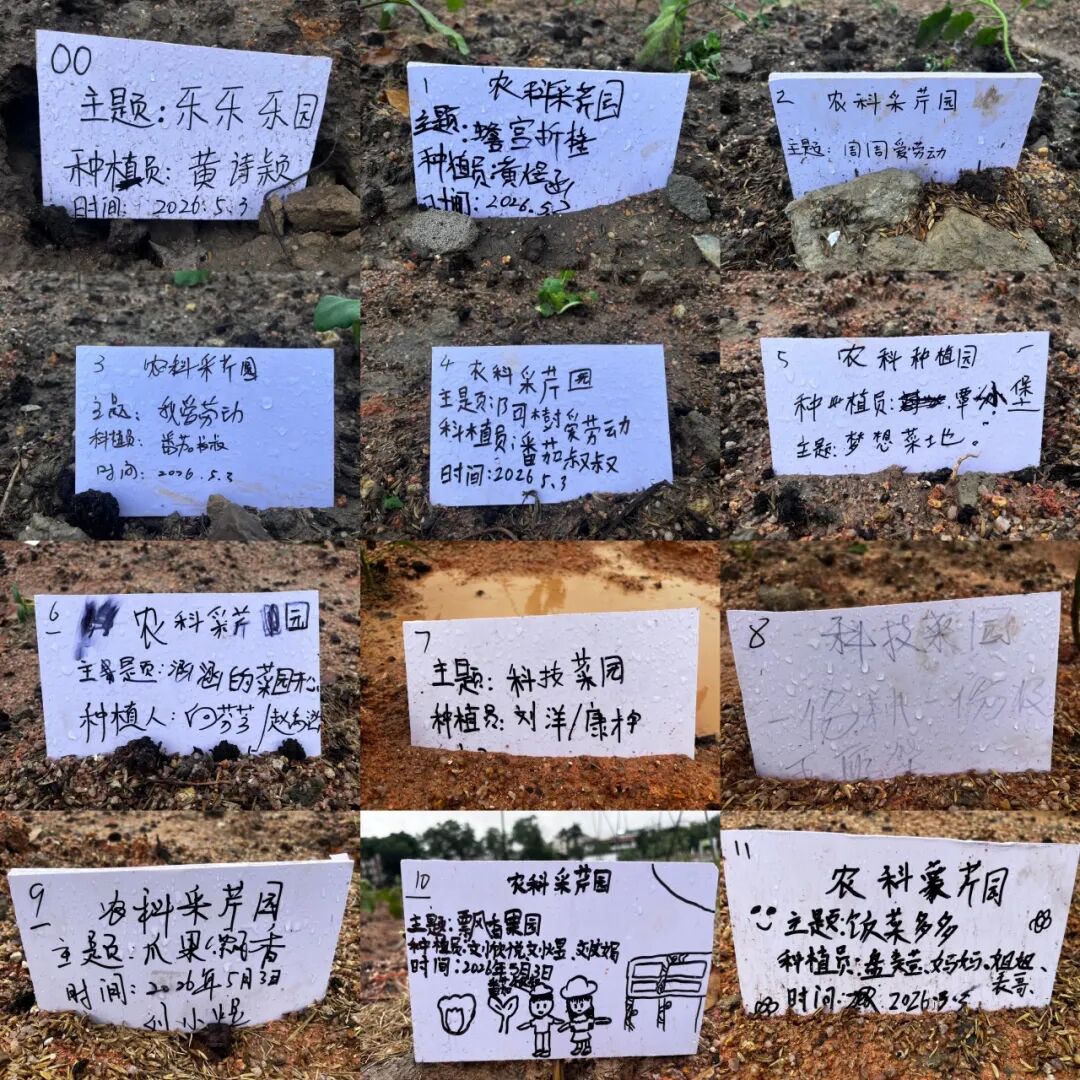 00
主题:乐乐乐园
种植员:黄诗颖
时间:2026.5.3
1
农科采芹园
主题:蟾宫折桂
种植员:黄煜
时间:2026.5.3
2 农科采芹园
主题:周周爱劳动
3 农科采芹园
主题:我爱劳动
种植员:番茄叔叔
时间:2026.5.3
4 农科采芹园
主题:阿树爱劳动
种植员:番茄叔叔
时间:2026.5.3
5 农科种植园
种植员:覃 堡
主题:梦想菜地。
6 农科采芹园
主题:涵涵的菜园
种植人:向芬芳/赵
7
主题:科技菜园
种植员:刘洋/康
8 科技菜园
一份耕一份收
9 农科采芹园
主题:瓜果飘香
时间:2026年5月3日
刘小
10 农科采芹园
主题:飘香果园
种植员:文悦 文
时间:2026年5月3日
11
农科采芹园
主题:饭菜多多
种植员:妈妈、姐姐、
表哥、
时间:2026.5.3